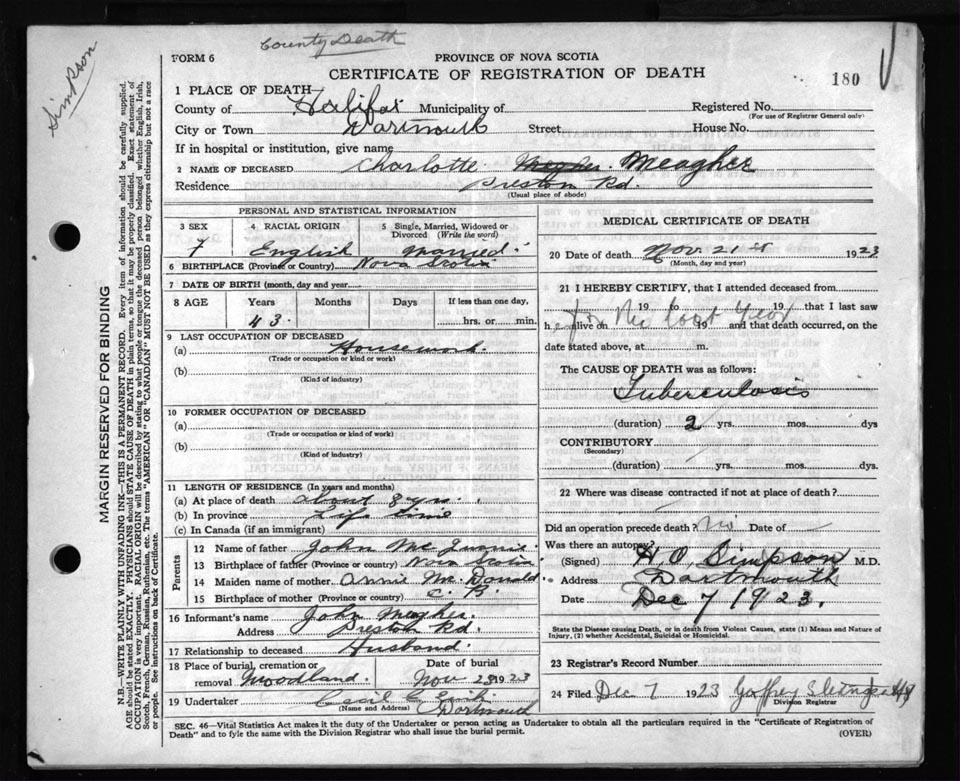 County Death
Simpson
FORM 6
PROVINCE OF NOVA SCOTIA
CERTIFICATE OF REGISTRATION OF DEATH
180
1 PLACE OF DEATH
County of Halifax Municipality of Registered No.
(For use of Registrar General only)
City or Town Dartmouth Street House No.
If in hospital or institution, give name
2 NAME OF DECEASED Charlotte Meagher
Residence Preston Rd.
(Usual place of abode)
PERSONAL AND STATISTICAL INFORMATION
3 SEX 4 RACIAL ORIGIN 5 Single, Married, Widowed or Divorced (Write the word)
F English Married
6 BIRTHPLACE (Province or Country) Nova Scotia
7 DATE OF BIRTH (month, day and year)
8 AGE Years Months Days If less than one day,
43 hrs. or min.
9 LAST OCCUPATION OF DECEASED
(a) Housework
(Trade or occupation or kind or work)
(b)
(Kind of industry)
10 FORMER OCCUPATION OF DECEASED
(a)
(Trade or occupation or kind of work)
(b)
(Kind of industry)
11 LENGTH OF RESIDENCE (In years and months)
(a) At place of death about 8 yrs.
(b) In province Life time
(c) In Canada (if an immigrant)
Parents
12 Name of father John
13 Birthplace of father (Province or country) Nova Scotia
14 Maiden name of mother Annie McDonald
15 Birthplace of mother (Province or country) C. B.
16 Informant's name John Meagher
Address Preston Rd.
17 Relationship to deceased Husband
18 Place of burial, cremation or removal Woodland Date of burial Nov 23 1923
19 Undertaker Cecil E.
(Name and Address) Dartmouth
MEDICAL CERTIFICATE OF DEATH
20 Date of death Nov 21st 1923
(Month, day and year)
21 I HEREBY CERTIFY, that I attended deceased from
19 to 19 that I last saw
h alive on 19 and that death occurred, on the
for the last year
date stated above, at m.
The CAUSE OF DEATH was as follows:
Tuberculosis
(duration) 2 yrs. mos. dys
CONTRIBUTORY
(Secondary)
(duration) yrs. mos. dys.
22 Where was disease contracted if not at place of death?
Did an operation precede death? No Date of
Was there an autopsy?
(Signed) H. O. Simpson M.D.
Address Dartmouth
Date Dec 7 1923.
State the Disease causing Death, or in death from Violent Causes, state (1) Means and Nature of
Injury, (2) whether Accidental, Suicidal or Homicidal.
23 Registrar's Record Number
24 Filed Dec 7 1923
Division Registrar
SEC. 46—Vital Statistics Act makes it the duty of the Undertaker or person acting as Undertaker to obtain all the particulars required in the "Certificate of Registration of
Death" and to fyle the same with the Division Registrar who shall issue the burial permit.
(OVER)
MARGIN RESERVED FOR BINDING
N.B.—WRITE PLAINLY WITH UNFADING INK—THIS IS A PERMANENT RECORD. Every item of information should be carefully supplied.
AGE should be stated EXACTLY. PHYSICIANS should STATE CAUSE OF DEATH in plain terms, so that it may be properly classified. Exact statement of
OCCUPATION is very important. RACIAL ORIGIN will be described by stating to what people or tongue the deceased person belonged whether English, Irish,
Scotch, French, German, Russian, Ruthenian, etc. The terms "AMERICAN" OR "CANADIAN" MUST NOT BE USED as they express citizenship but not a race
or people. See instructions on back of Certificate.